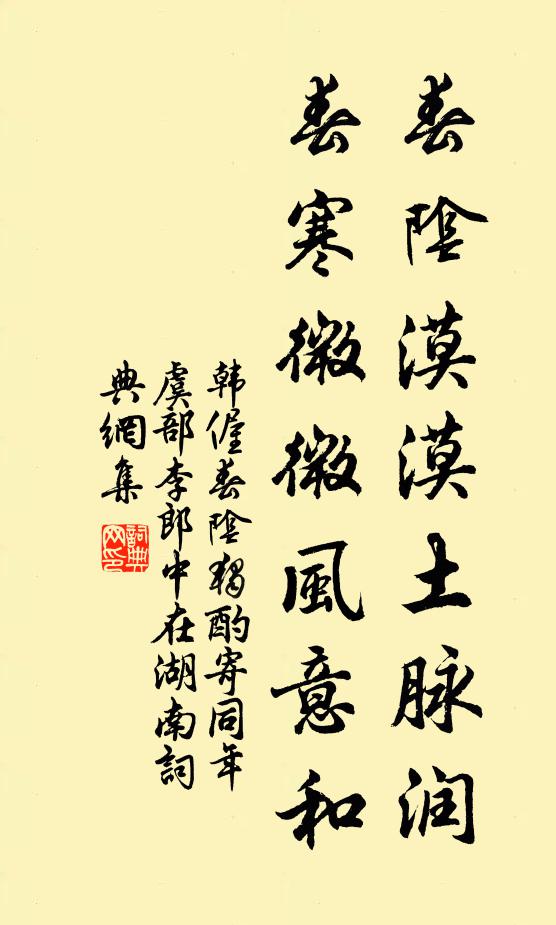 春陰漠漠土脉润
春寒微微風意和
韩偓春陰獨酌寄同年
虞部李郎中在湖南詞
典網集
詞典网印